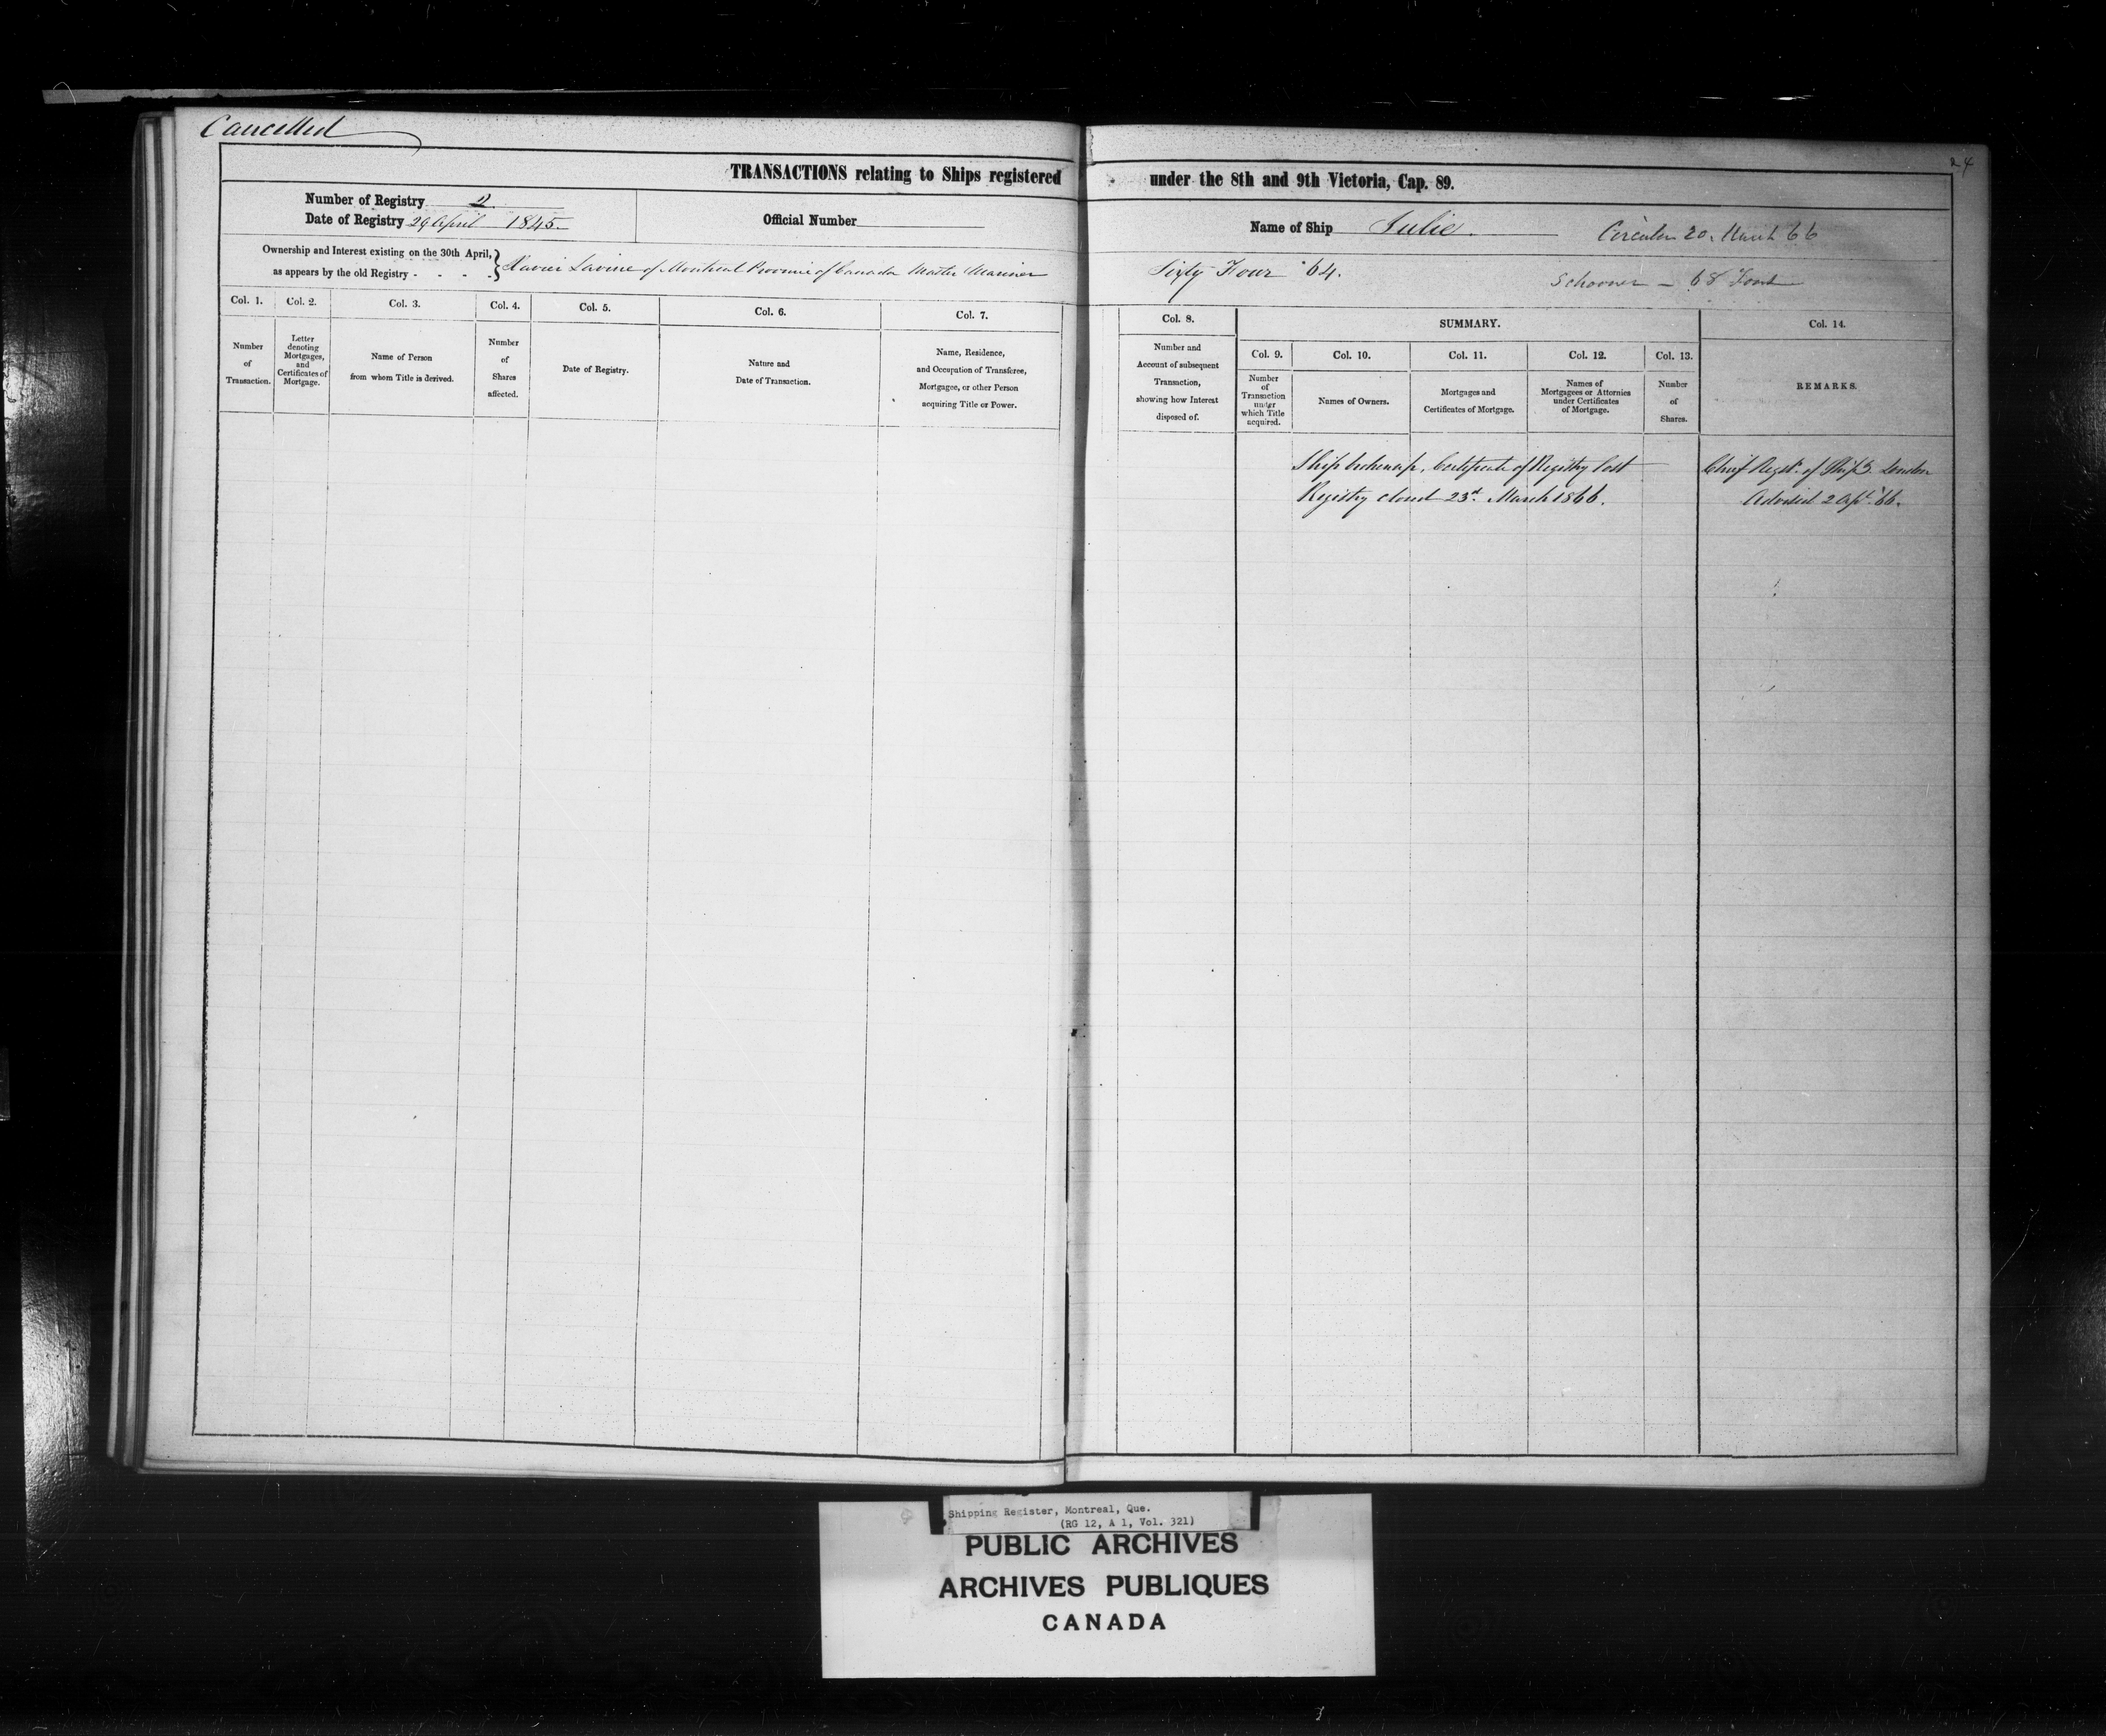 Cancelled
24
TRANSACTIONS relating to Ships registered under the 8th and 9th Victoria, Cap. 89.
Number of Registry 2
Date of Registry 29 April 1845
Official Number
Name of Ship Julie.
Circular 20. March 66
Ownership and Interest existing on the 30th April,
as appears by the old Registry - - - -
Xavier Lavine of Montreal Province of Canada Master Mariner
Sixty Four 64.
Schooner - 68
Col. 1.
Col. 2.
Col. 3.
Col. 4.
Col. 5.
Col. 6.
Col. 7.
Col. 8.
SUMMARY.
Col. 14.
Col. 9.
Col. 10.
Col. 11.
Col. 12.
Col. 13.
Number
of
Transaction.
Letter
denoting
Mortgages,
and
Certificates of
Mortgage.
Name of Person
from whom Title is derived.
Number
of
Shares
affected.
Date of Registry.
Nature and
Date of Transaction.
Name, Residence,
and Occupation of Transferee,
Mortgagee, or other Person
acquiring Title or Power.
Number and
Account of subsequent
Transaction,
showing how Interest
disposed of.
Number
of
Transaction
under
which Title
acquired.
Names of Owners.
Mortgages and
Certificates of Mortgage.
Names of
Mortgagees or Attornies
under Certificates
of Mortgage.
Number
of
Shares.
REMARKS.
Ship broken up, Certificate of Registry lost
Registry closed 23d. March 1866.
Chief Regstr. of Ships London
Advised 2 Apl. 66.
Shipping Register, Montreal, Que.
(RG 12, A 1, Vol. 321)
PUBLIC ARCHIVES
ARCHIVES PUBLIQUES
CANADA